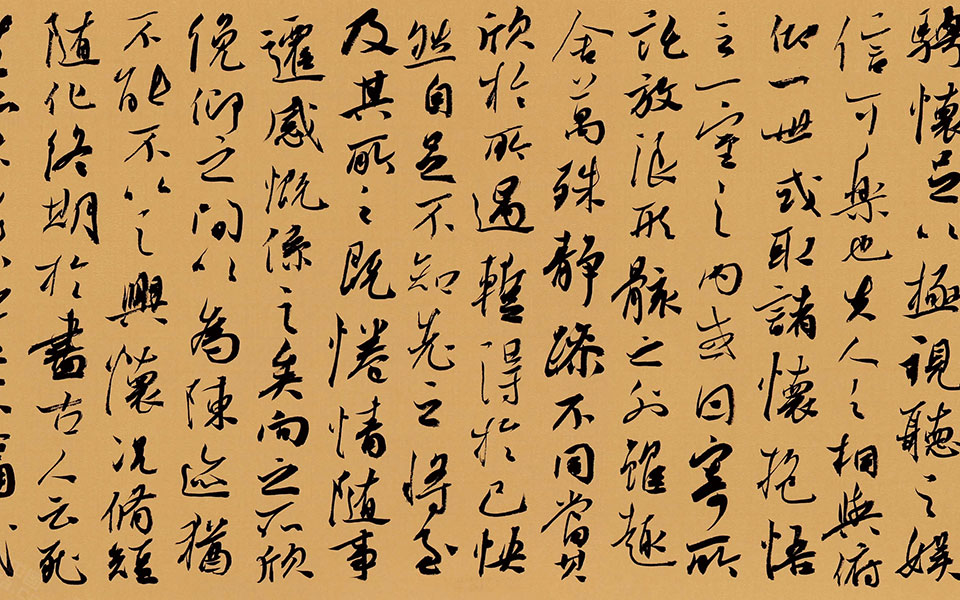 騁懷足以極視聽之娛
信可樂也夫人之相與俯
仰一世或取諸懷抱悟
言一室之內或因寄所
託放浪形骸之外雖趣
舍萬殊靜躁不同當其
欣於所遇暫得於己快
然自足不知老之將至
及其所之既惓情隨事
遷感慨係之矣向之所欣
俛仰之間以為陳迹猶
不能不以之興懷況脩短
隨化終期於盡古人云死